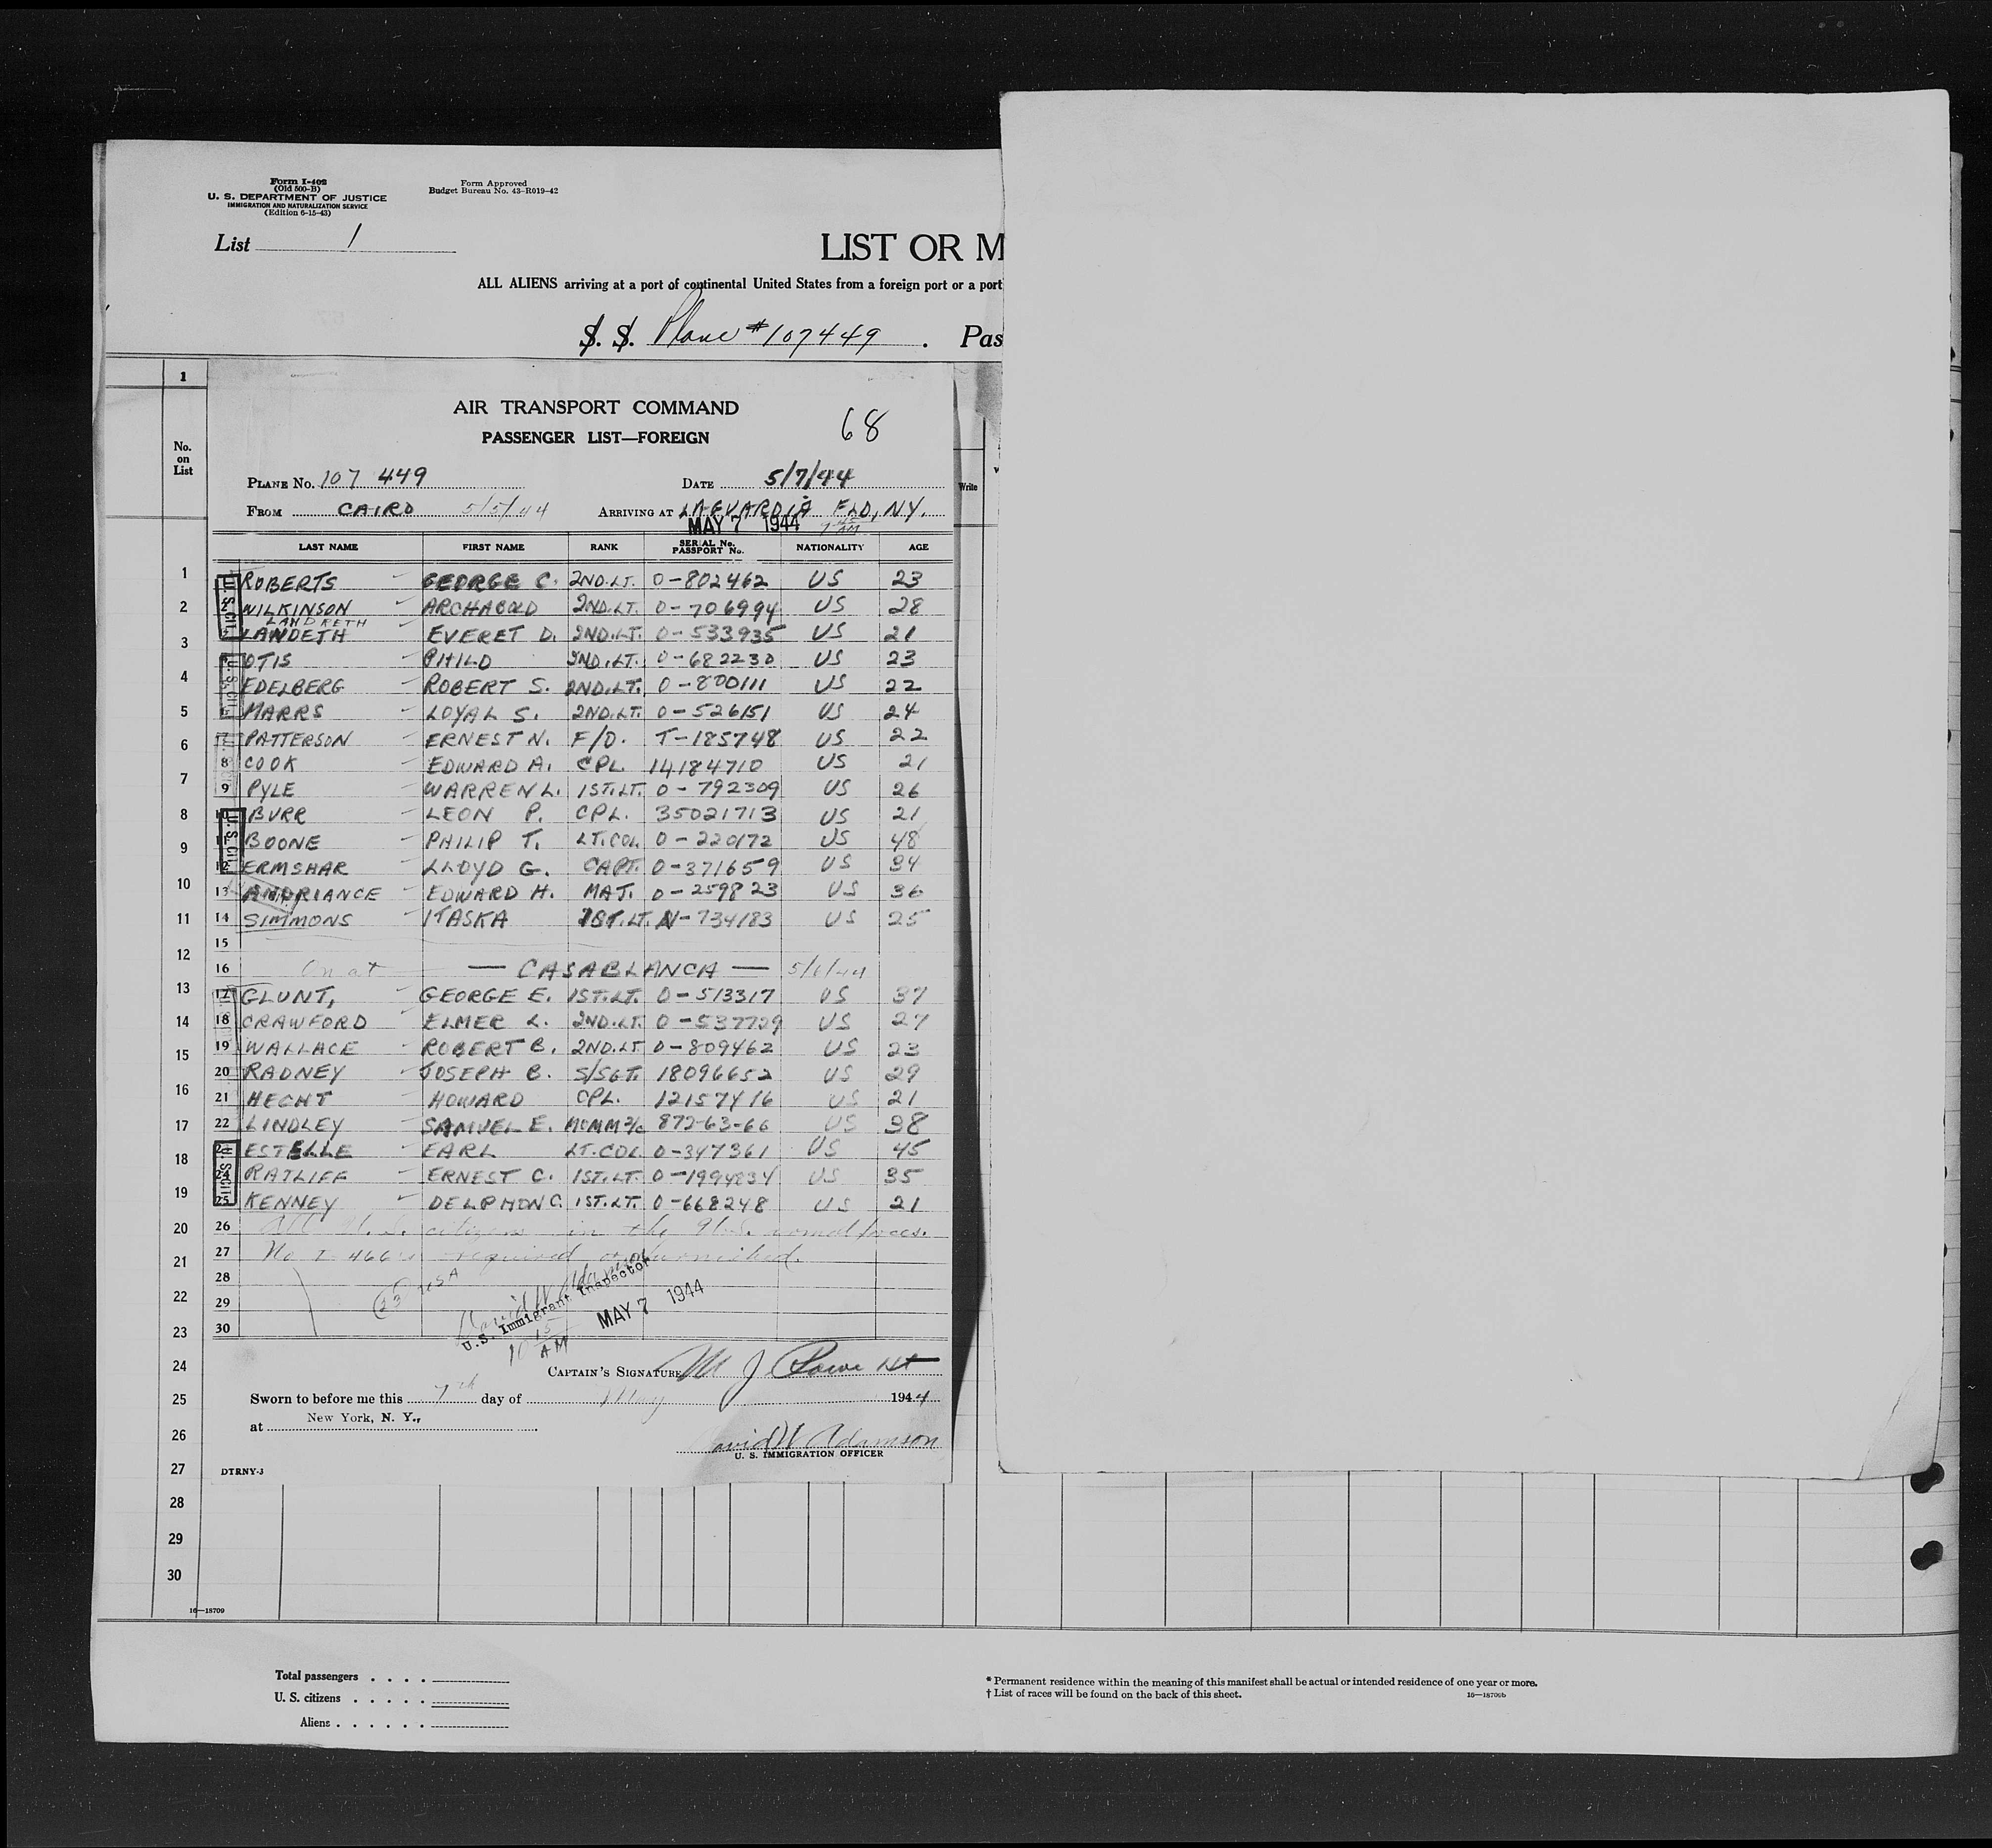 Form I-402
(Old 500-B)
U. S. DEPARTMENT OF JUSTICE
IMMIGRATION AND NATURALIZATION SERVICE
(Edition 6-15-43)
Form Approved
Budget Bureau No. 43-R019-42
List 1
LIST OR M
ALL ALIENS arriving at a port of continental United States from a foreign port or a port
S. S. Plane #107449 . Pas
1
No. on List
Write
AIR TRANSPORT COMMAND
68
PASSENGER LIST—FOREIGN
PLANE No. 107 449 DATE 5/7/44
FROM CAIRO 5/5/44 ARRIVING AT LAGUARDIA FLD, NY.
MAY 7 1944 7 45 AM
LAST NAME FIRST NAME RANK SERIAL No. PASSPORT No. NATIONALITY AGE
1 ROBERTS GEORGE C. 2ND.LT. O-802462 US 23
2 WILKINSON ARCHABOLD 2ND.LT. O-706994 US 28
LANDRETH
3 LANDETH EVERET D. 2ND.LT. O-533935 US 21
4 OTIS PHILO 2ND.LT. O-682230 US 23
5 EDELBERG ROBERT S. 2ND.LT. O-800111 US 22
6 MARRS LOYAL S. 2ND.LT. O-526151 US 24
7 PATTERSON ERNEST N. F/O. T-185748 US 22
8 COOK EDWARD A. CPL. 14184710 US 21
9 PYLE WARREN L. 1ST.LT. O-792309 US 26
10 BURR LEON P. CPL. 35021713 US 21
11 BOONE PHILIP T. LT.COL. O-220172 US 48
12 ERMSHAR LLOYD G. CAPT. O-371659 US 34
13 ANDRIANCE EDWARD H. MAJ. O-259823 US 36
14 SIMMONS ITASKA 1ST.LT. N-734183 US 25
15
16 On at — CASABLANCA — 5/6/44
17 GLUNT, GEORGE E. 1ST.LT. O-513317 US 37
18 CRAWFORD ELMER L. 2ND.LT. O-537729 US 27
19 WALLACE ROBERT B. 2ND.LT O-809462 US 23
20 RADNEY JOSEPH B. S/SGT. 18096652 US 29
21 HECHT HOWARD CPL. 12157416 US 21
22 LINDLEY SAMUEL E. MOMM 2/C 872-63-66 US 38
23 ESTELLE EARL LT.COL. O-347361 US 45
24 RATLIFF ERNEST C. 1ST.LT. O-1994834 US 35
25 KENNEY DELPMON C. 1ST.LT. O-668248 US 21
26 All U.S. citizens in the U.S. armed forces.
27 No I-466's required or furnished.
28 23 USA
29 David W Adamson
U.S. Immigrant Inspector MAY 7 1944
30
10 15 AM
CAPTAIN'S SIGNATURE M J
Sworn to before me this 7th day of May 1944
at New York, N. Y.,
David W Adamson
U. S. IMMIGRATION OFFICER
DTRNY-3
1
2
3
4
5
6
7
8
9
10
11
12
13
14
15
16
17
18
19
20
21
22
23
24
25
26
27
28
29
30
16—18709
Total passengers . . . .
U. S. citizens . . . . .
Aliens . . . . . .
* Permanent residence within the meaning of this manifest shall be actual or intended residence of one year or more.
† List of races will be found on the back of this sheet. 16—18709b